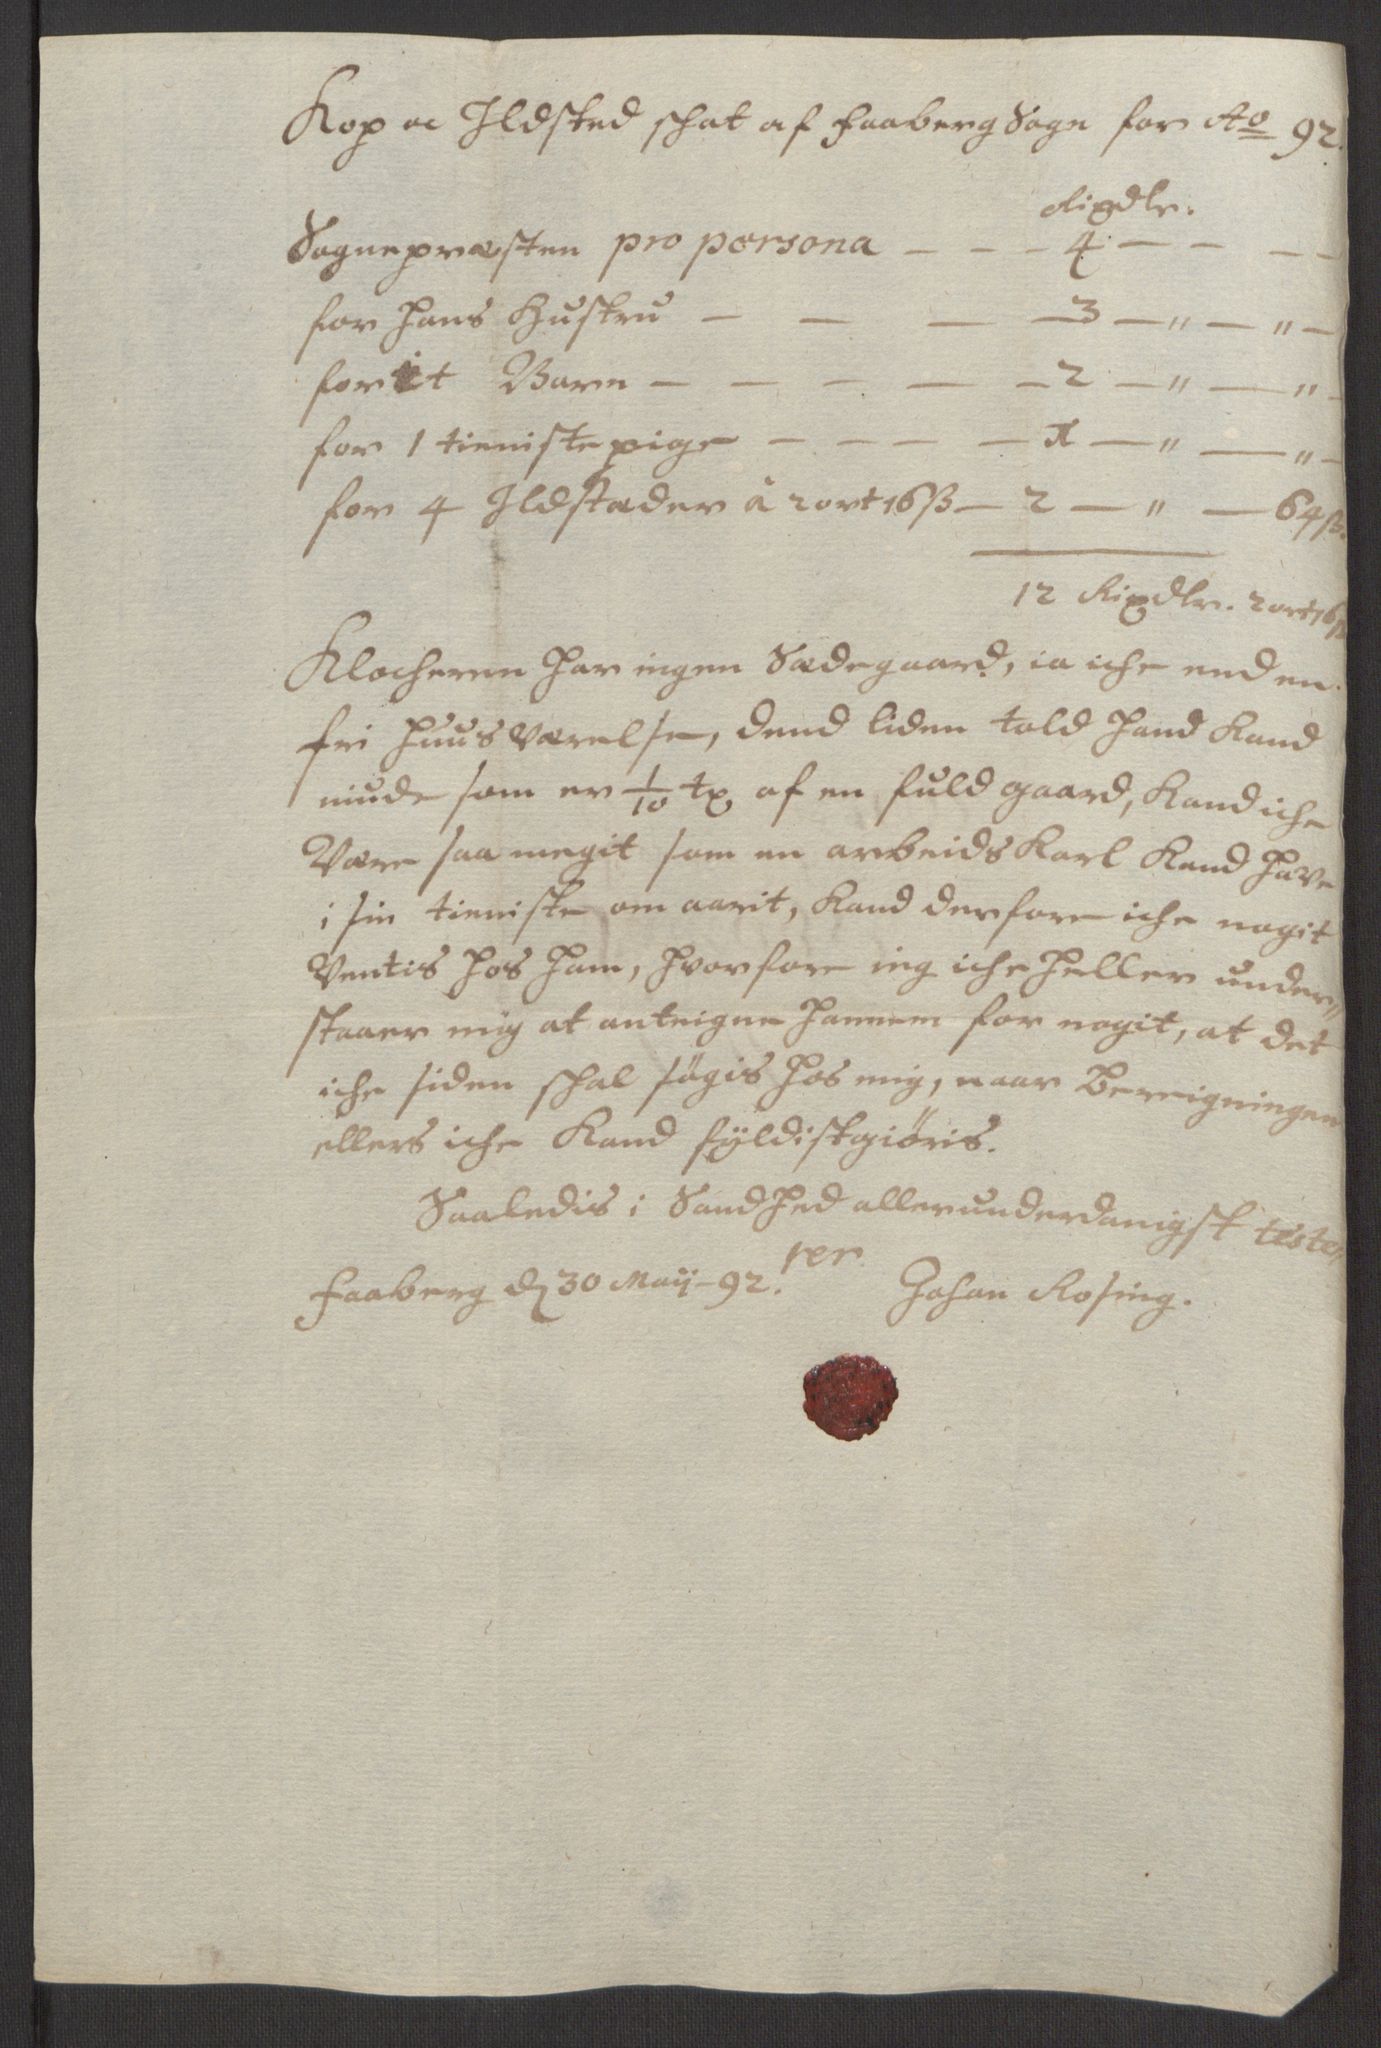 Kop oc Ildsted schat af Faaberg Sogn for Ao 92.
Rixdlr.
Sognepræsten pro persona — — — 4 — — — —
for hans Hustru — — — — 3 — " — " —
for it Barn — — — — — 2 — " — " —
for 1 tieniste pige — — — — 1 — " — " —
for 4 Ildstæder à 2 ort 16 ß — 2 — " — 64 ß.
12 Rixdlr. 2 ort 16 ß
Klocheren har ingen Sædegaard, ia iche end en
fri huusværelse, dend liden told hand Kand
niude som er 1/10 tp af en fuld gaard, Kand iche
Være saa megit som en arbeids Karl Kand have
i sin tieniste om aarit, Kand derfore iche nogit
Ventis hos ham, hvorfore ieg iche heller under„
staaer mig at anteigne hannem for nogit, at det
iche siden schal søgis hos mig, naar Bereigningen
ellers iche Kand fyldistgiøris.
Saaledis i Sandhed allerunderdanigst tester
Faaberg dn 30 Maij - 92.
Johan Rosing.